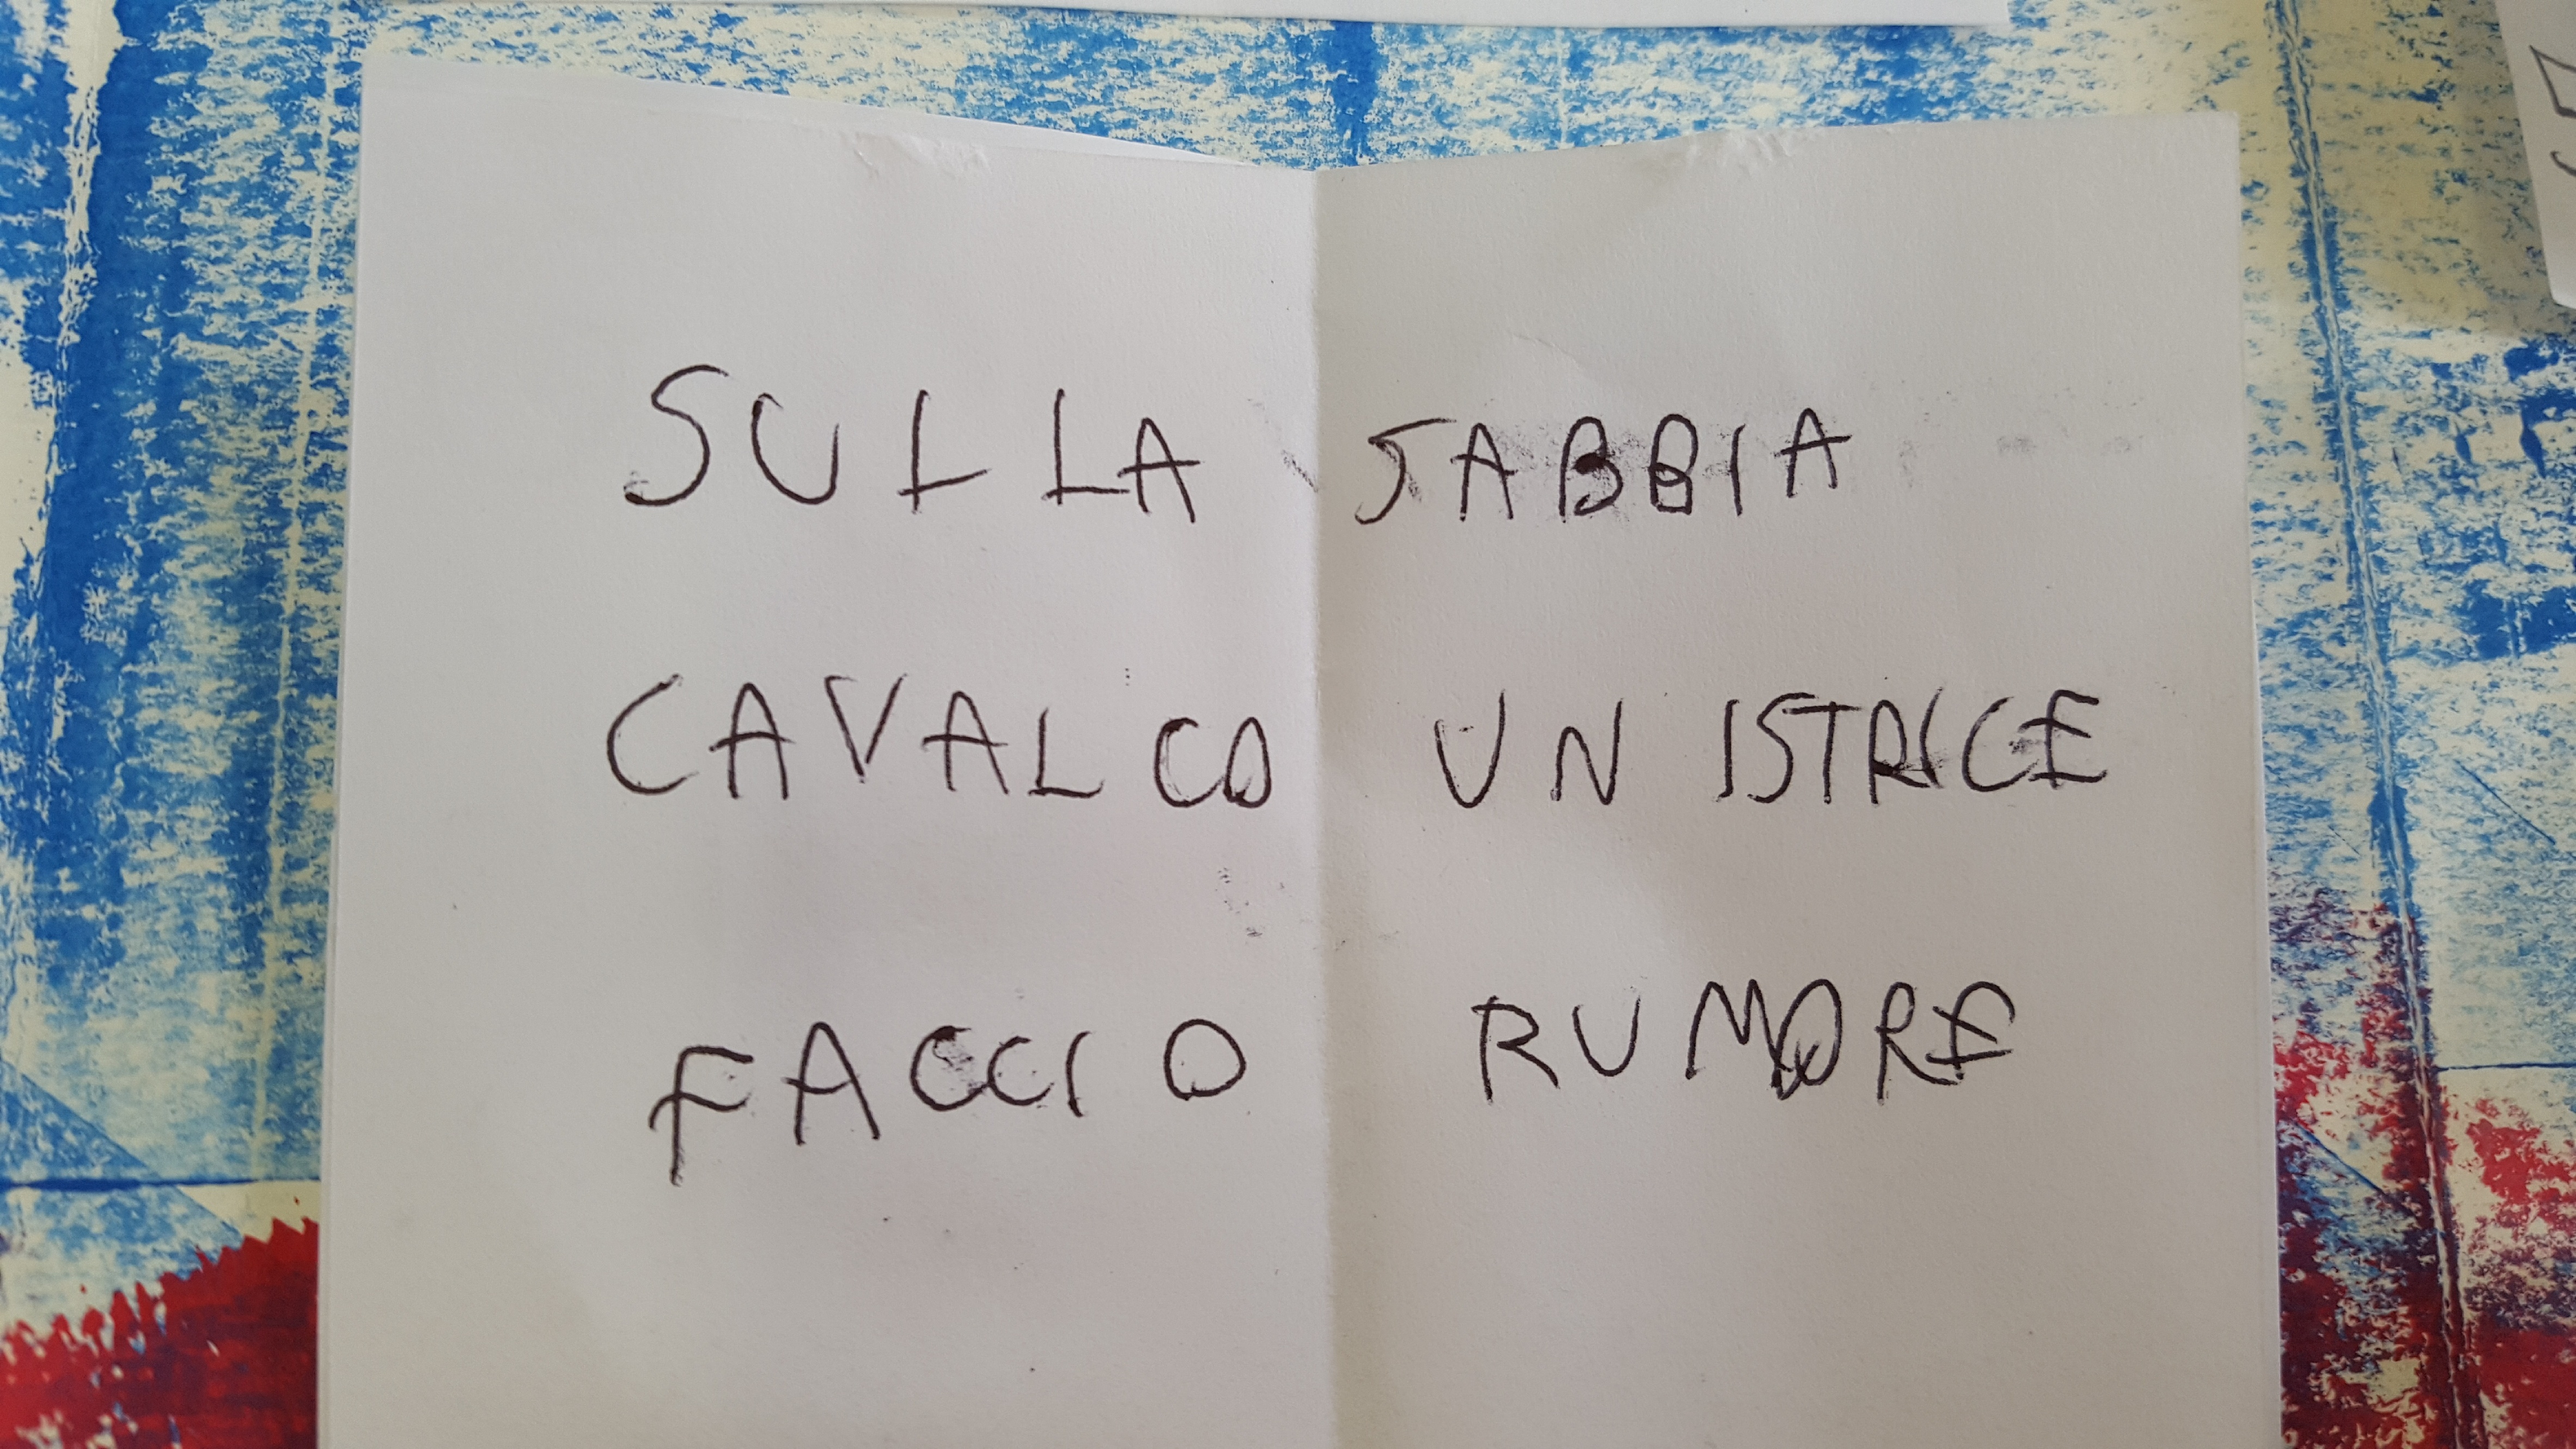 SULLA SABBIA
CAVALCO UN ISTRICE
FACCIO RUMORE